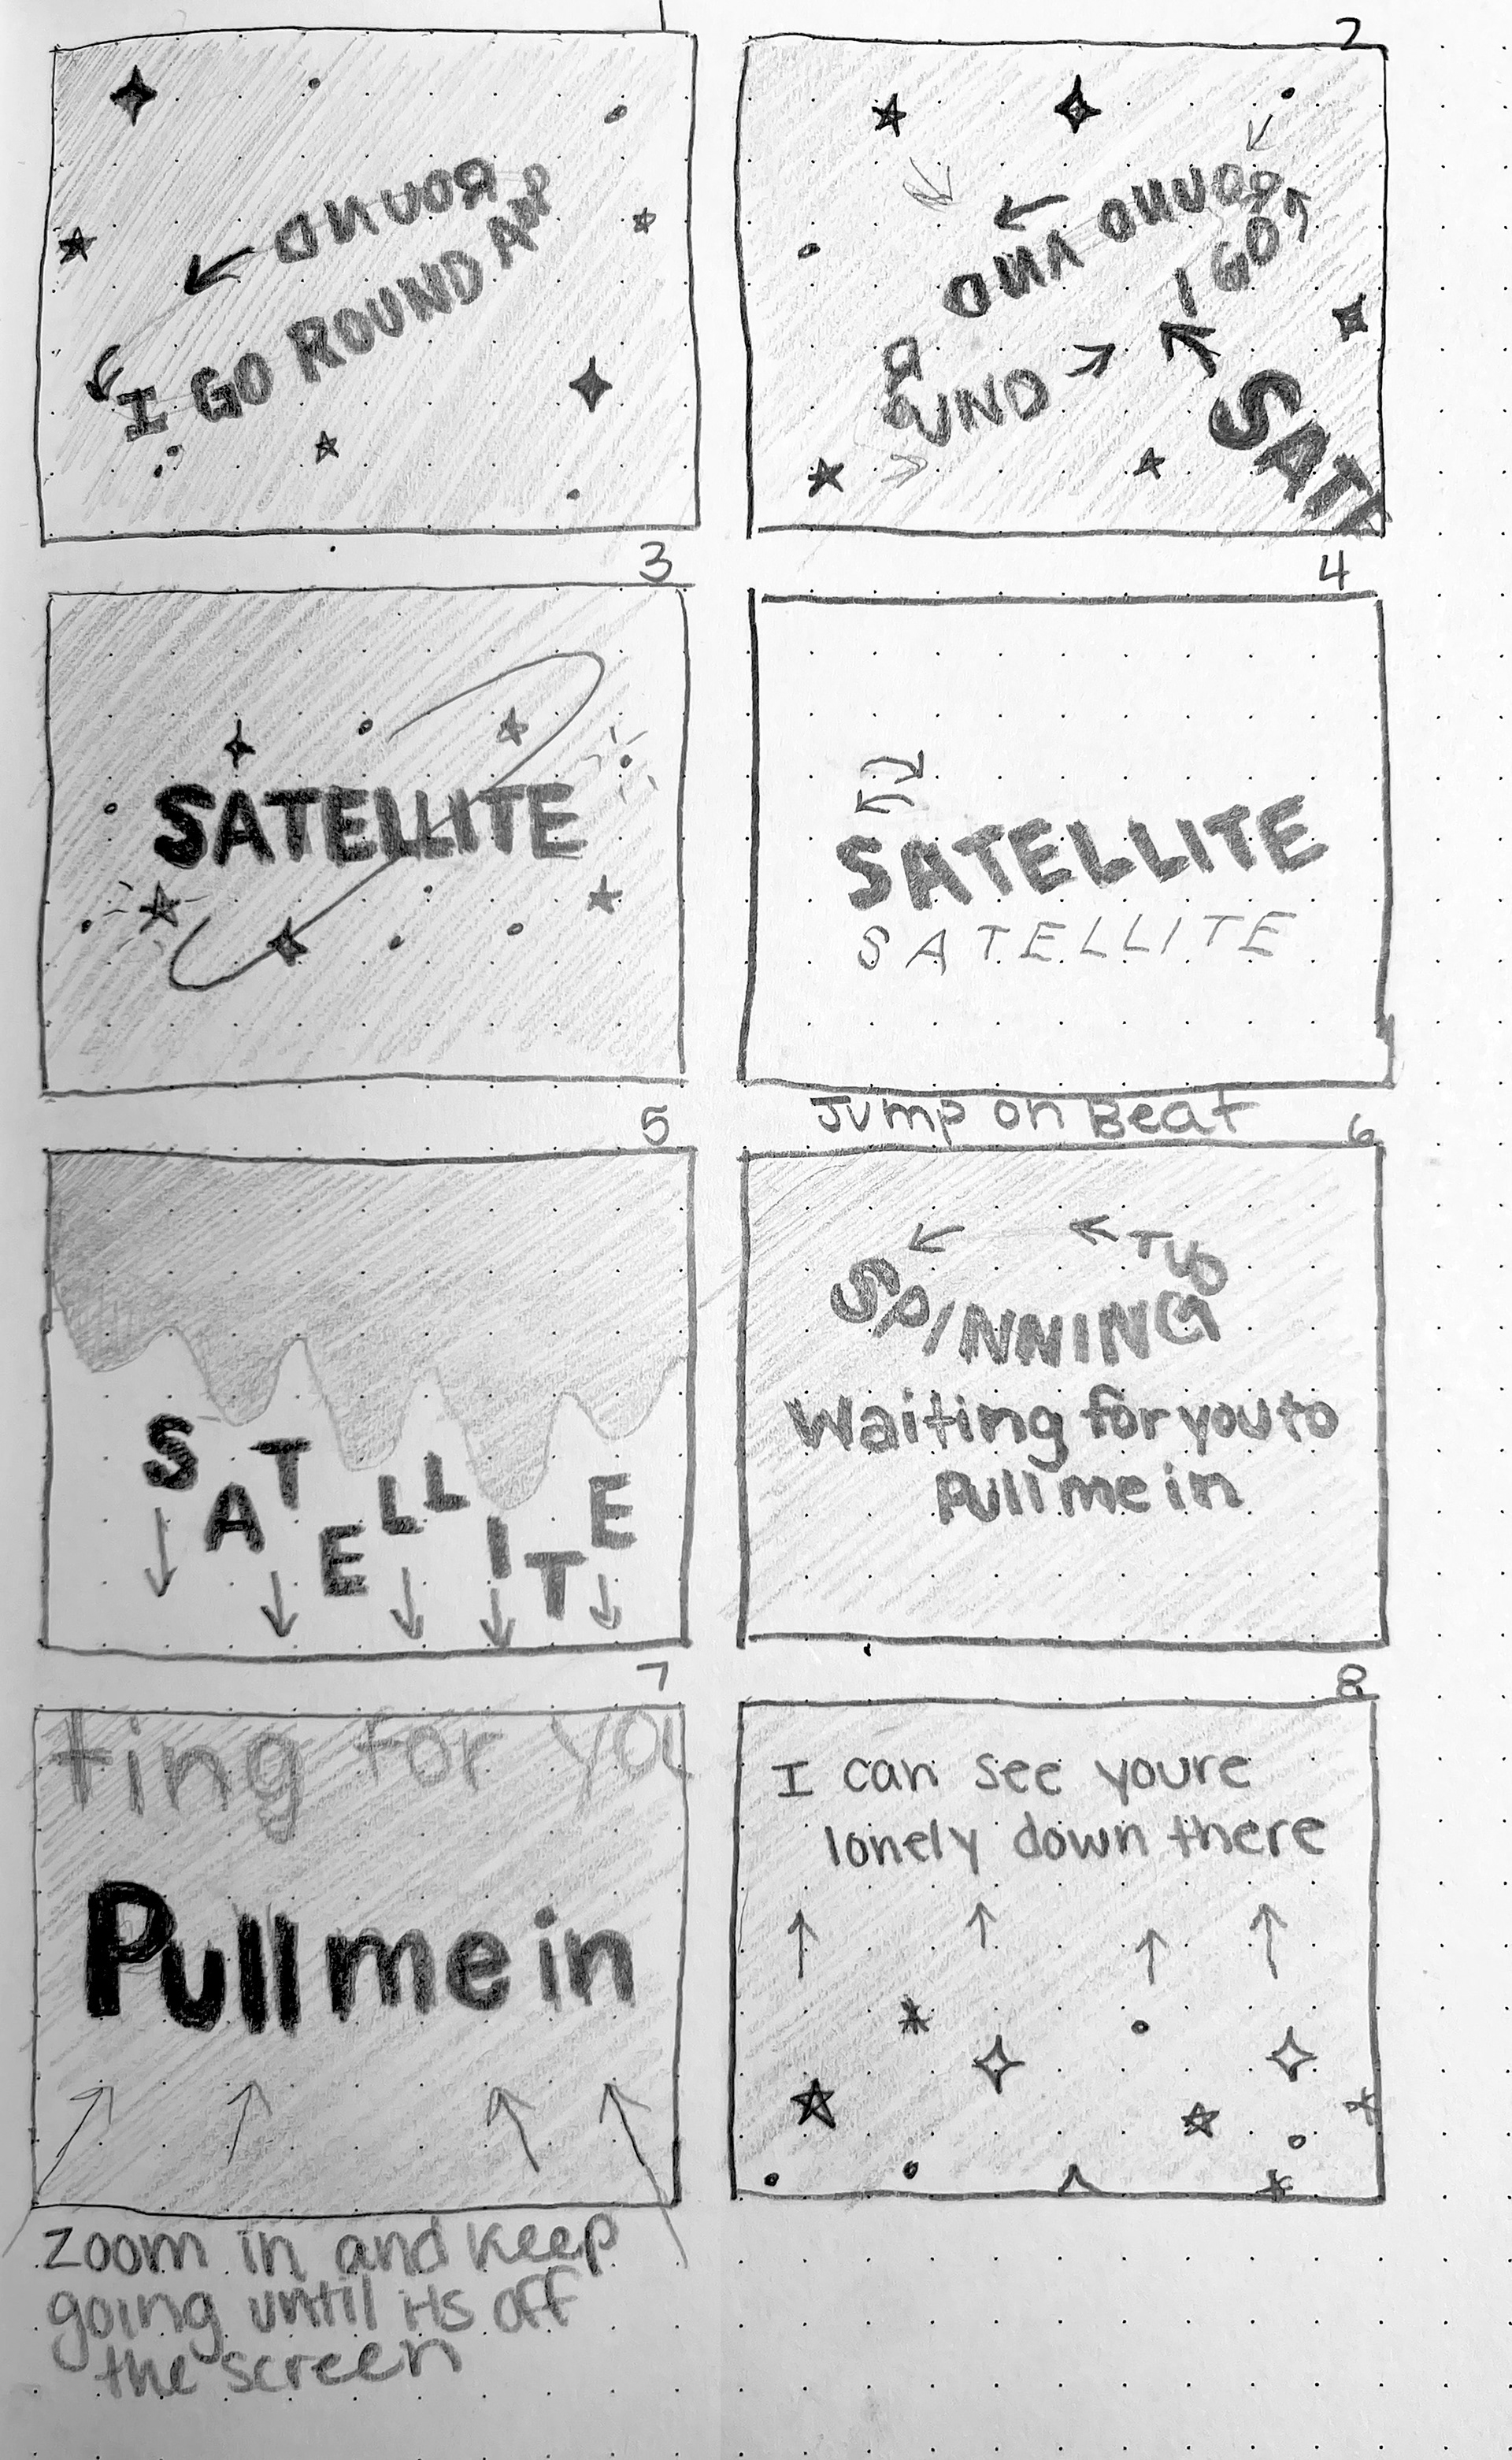 ROUND
I GO ROUND AND
2
ROUND
AND
I GO
R
OUND
SATE
3
SATELLITE
4
SATELLITE
SATELLITE
Jump on Beat
5
SATELLITE
6
SPINNING
Waiting for you to
Pull me in
7
ting for you
Pull me in
zoom in and keep
going until its off
the screen
8
I can see youre
lonely down there